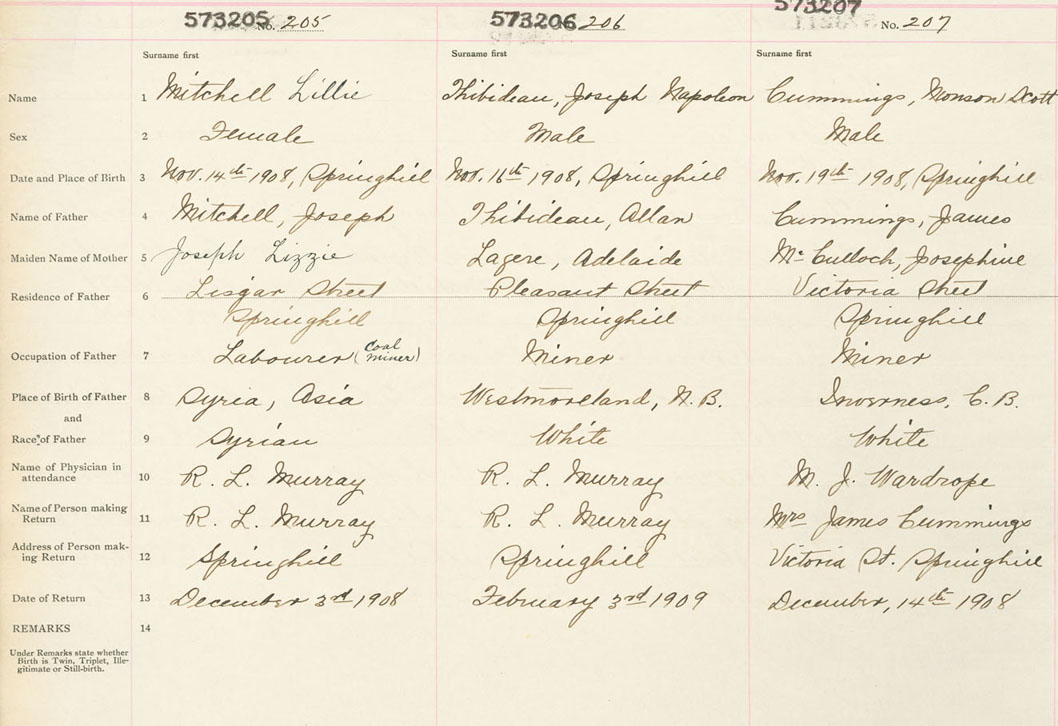 573205 No. 205 573206 206 573207 No. 207
Surname first Surname first Surname first
Name 1 Mitchell Lillie Thibideau, Joseph Napoleon Cummings, Monson Scott
Sex 2 Female Male Male
Date and Place of Birth 3 Nov. 14th 1908, Springhill Nov. 16th 1908, Springhill Nov. 19th 1908, Springhill
Name of Father 4 Mitchell, Joseph Thibideau, Allan Cummings, James
Maiden Name of Mother 5 Joseph Lizzie Lagere, Adelaide Mc Culloch, Josephine
Residence of Father 6 Lisgar Street Pleasant Street Victoria Street
Springhill Springhill Springhill
Occupation of Father 7 Labourer (Coal miner) Miner Miner
Place of Birth of Father 8 Syria, Asia Westmoreland, N.B. Inverness, C.B.
and
Race of Father 9 Syrian White White
Name of Physician in
attendance 10 R. L. Murray R. L. Murray M. J. Wardrope
Name of Person making
Return 11 R. L. Murray R. L. Murray Mrs James Cummings
Address of Person mak-
ing Return 12 Springhill Springhill Victoria St. Springhill
Date of Return 13 December 3rd 1908 February 3rd 1909 December, 14th 1908
REMARKS 14
Under Remarks state whether
Birth is Twin, Triplet, Ille-
gitimate or Still-birth.